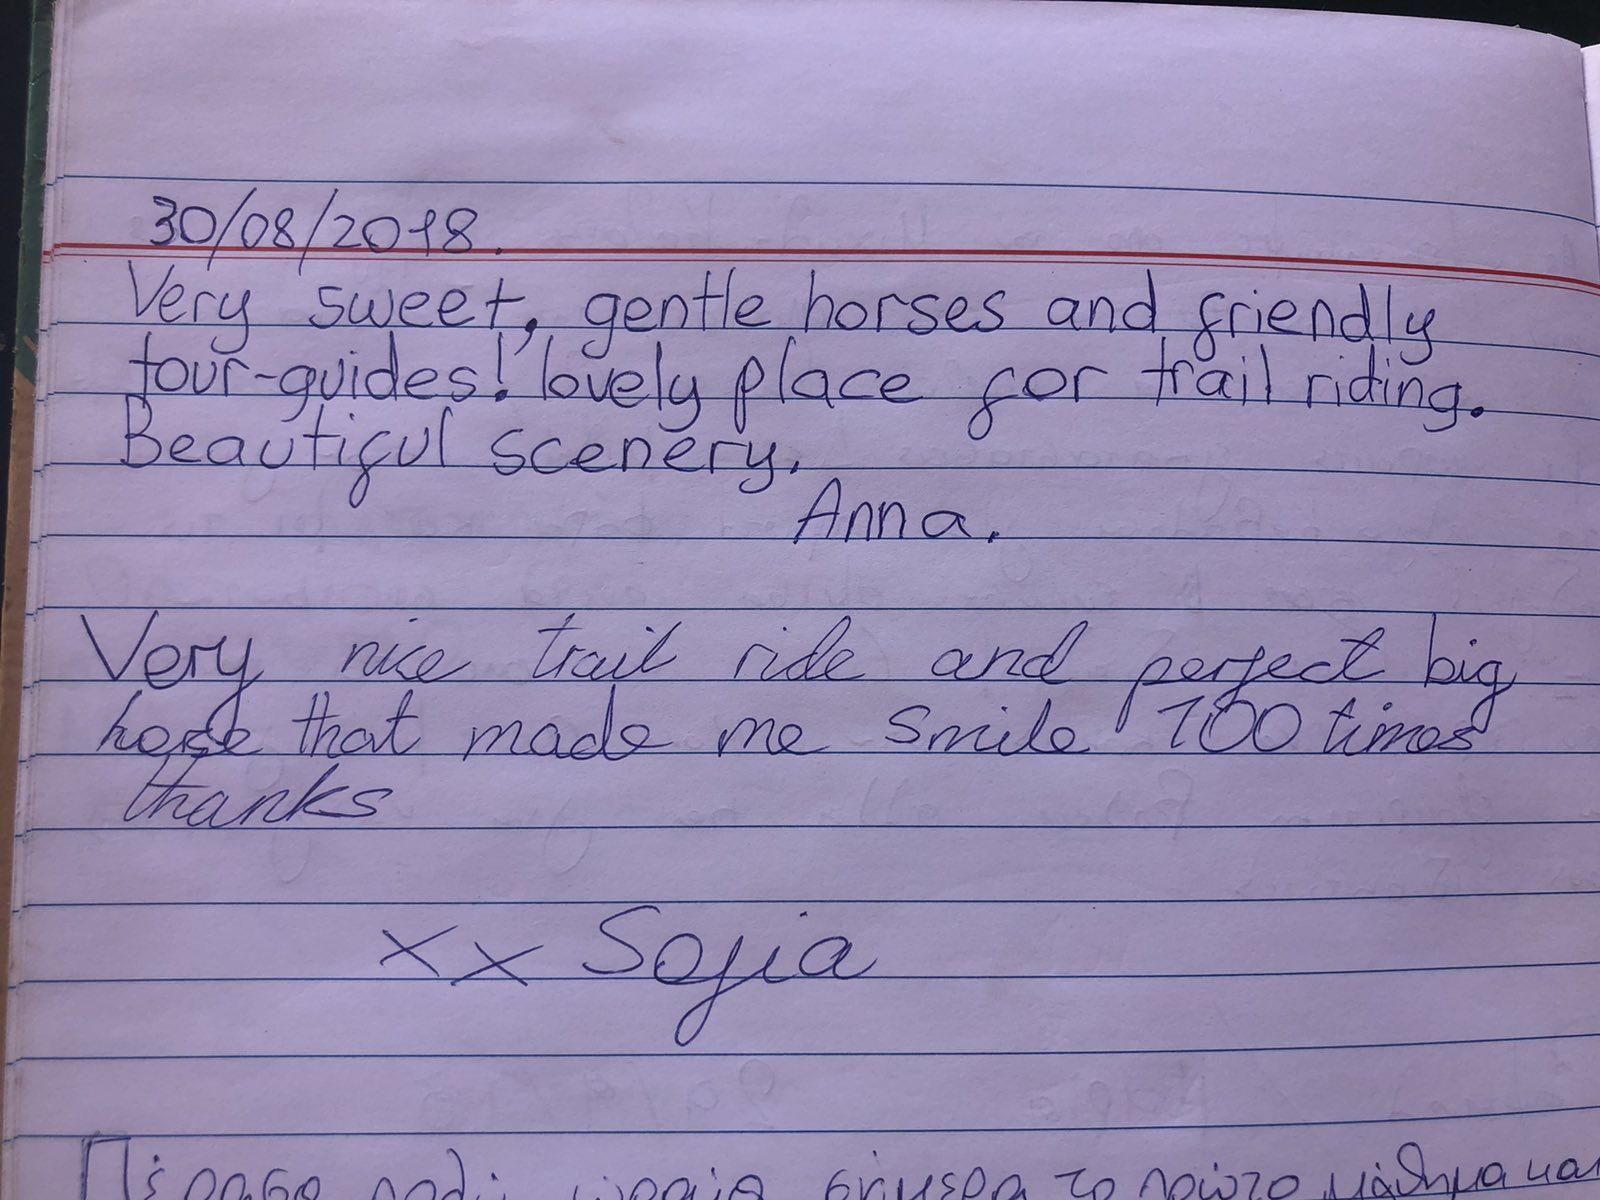 30/08/2018.
Very sweet, gentle horses and friendly
tour-guides! lovely place for trail riding.
Beautiful scenery.
Anna.
Very nice trail ride and perfect big
horse that made me smile 100 times
thanks
xx Sofia
Πέρασα πολύ ωραία σήμερα το πρώτο μάθημα και